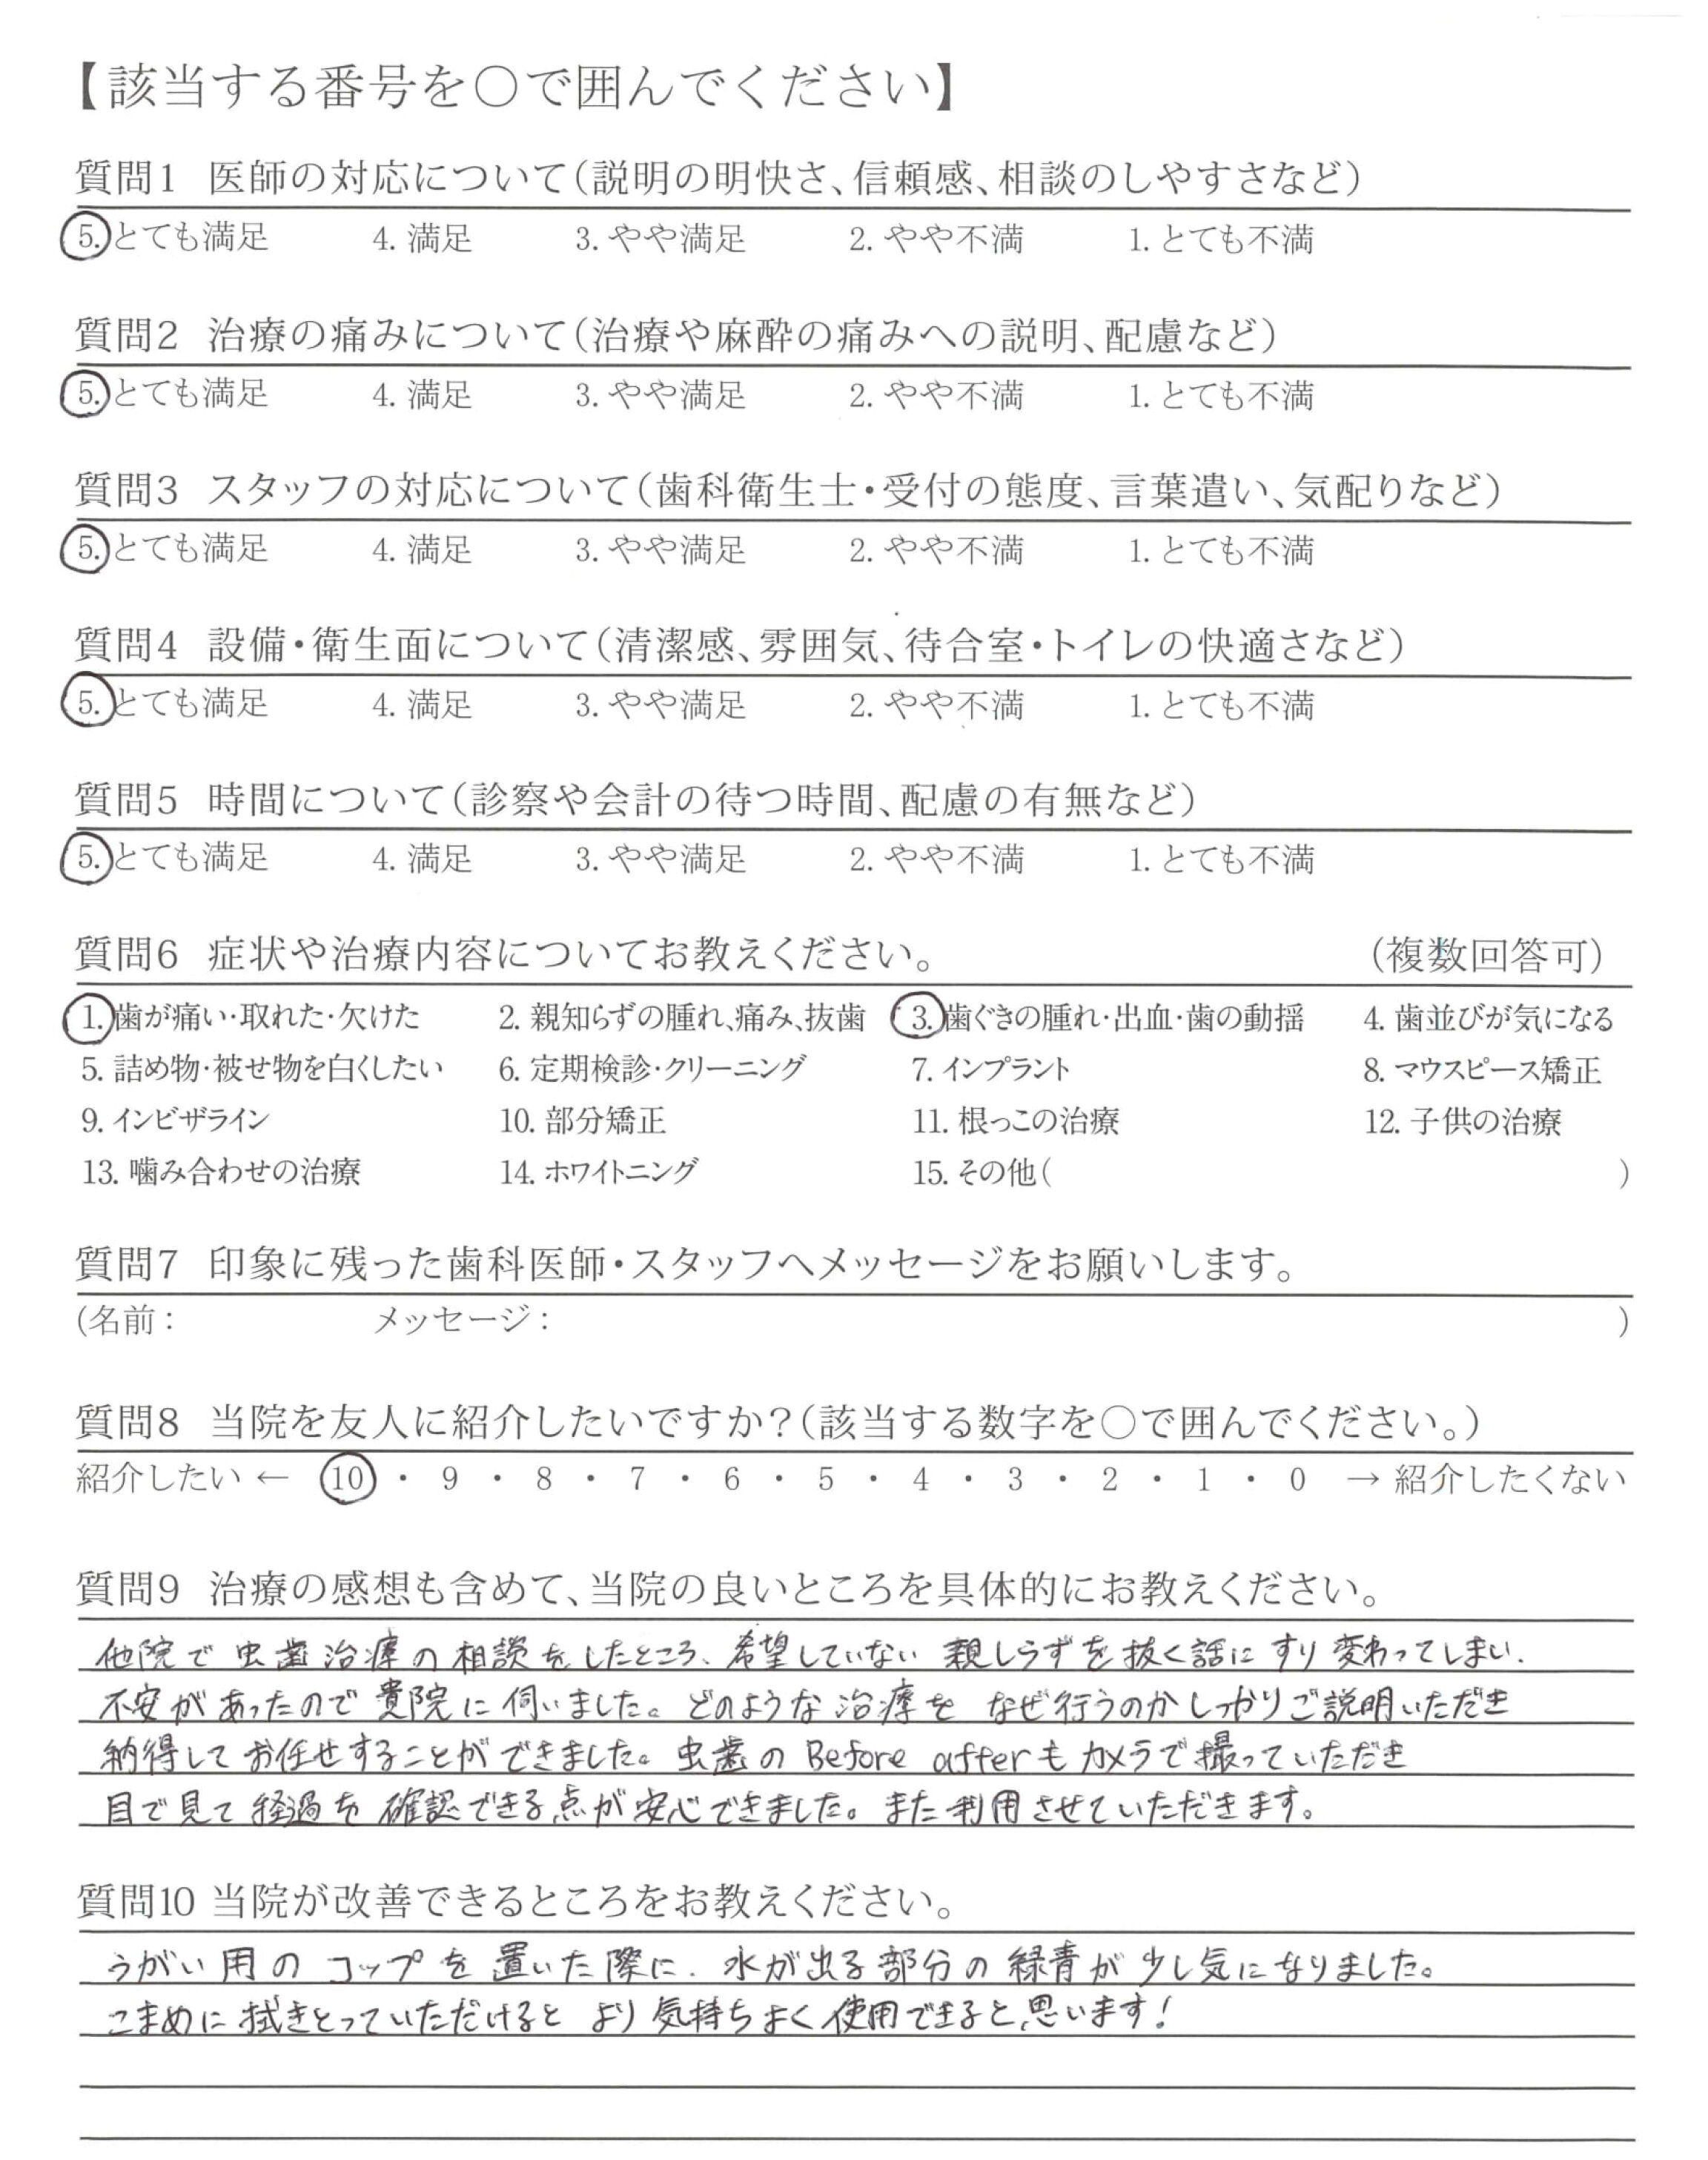 【該当する番号を〇で囲んでください】
質問1 医師の対応について(説明の明快さ、信頼感、相談のしやすさなど)
5. とても満足 4. 満足 3. やや満足 2. やや不満 1. とても不満
質問2 治療の痛みについて(治療や麻酔の痛みへの説明、配慮など)
5. とても満足 4. 満足 3. やや満足 2. やや不満 1. とても不満
質問3 スタッフの対応について(歯科衛生士・受付の態度、言葉遣い、気配りなど)
5. とても満足 4. 満足 3. やや満足 2. やや不満 1. とても不満
質問4 設備・衛生面について(清潔感、雰囲気、待合室・トイレの快適さなど)
5. とても満足 4. 満足 3. やや満足 2. やや不満 1. とても不満
質問5 時間について(診察や会計の待つ時間、配慮の有無など)
5. とても満足 4. 満足 3. やや満足 2. やや不満 1. とても不満
質問6 症状や治療内容についてお教えください。 (複数回答可)
1. 歯が痛い・取れた・欠けた 2. 親知らずの腫れ、痛み、抜歯 3. 歯ぐきの腫れ・出血・歯の動揺 4. 歯並びが気になる
5. 詰め物・被せ物を白くしたい 6. 定期検診・クリーニング 7. インプラント 8. マウスピース矯正
9. インビザライン 10. 部分矯正 11. 根っこの治療 12. 子供の治療
13. 噛み合わせの治療 14. ホワイトニング 15. その他( )
質問7 印象に残った歯科医師・スタッフへメッセージをお願いします。
(名前: メッセージ: )
質問8 当院を友人に紹介したいですか?(該当する数字を〇で囲んでください。)
紹介したい ← 10 ・ 9 ・ 8 ・ 7 ・ 6 ・ 5 ・ 4 ・ 3 ・ 2 ・ 1 ・ 0 → 紹介したくない
質問9 治療の感想も含めて、当院の良いところを具体的にお教えください。
他院で虫歯治療の相談をしたところ、希望していない親しらずを抜く話にすり変わってしまい、
不安があったので貴院に伺いました。どのような治療をなぜ行うのかしっかりご説明いただき
納得してお任せすることができました。虫歯のBefore afterもカメラで撮っていただき
目で見て経過を確認できる点が安心できました。また利用させていただきます。
質問10 当院が改善できるところをお教えください。
うがい用のコップを置いた際に、水が出る部分の緑青が少し気になりました。
こまめに拭きとっていただけるとより気持ちよく使用できると思います!